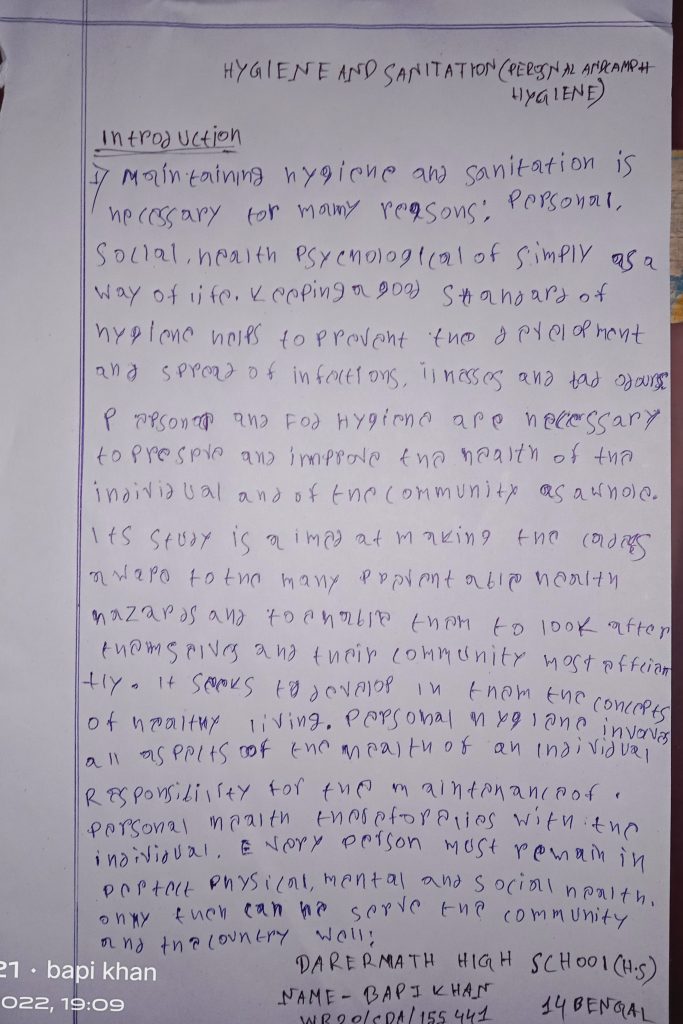 HYGIENE AND SANITATION (PERSNAL AND CAMPH
HYGIENE)
introduction
1) Maintaining hygiene and sanitation is
necessary for mamy reasons: Personal,
social, health Psychological of simply as a
way of life. Keeping a god standard of
hygiene helps to prevent the development
and spread of infections, ilnesses and bad odours
Personap and Fod Hygiene are necessary
to preserve and improve the health of the
individual and of the community as a whole.
Its study is aimed at making the cadets
aware to the many preventable health
hazards and to enable them to look after
themselves and their community most efficien
tly. It seeks to develop in them the concepts
of healthy living. Personal hygiene invoves
all aspects of the health of an individual
Responsibility for the maintenance of.
personal health therefore lies with the
individual. Every person must remain in
perfect physical, mental and social health.
onky then can he serve the community
and the country well:
DARERMATH HIGH SCHOOl (H.S)
NAME - BAPI KHAN
14 BENGAL
WB20/CDA/155441
21 · bapi khan
022, 19:09